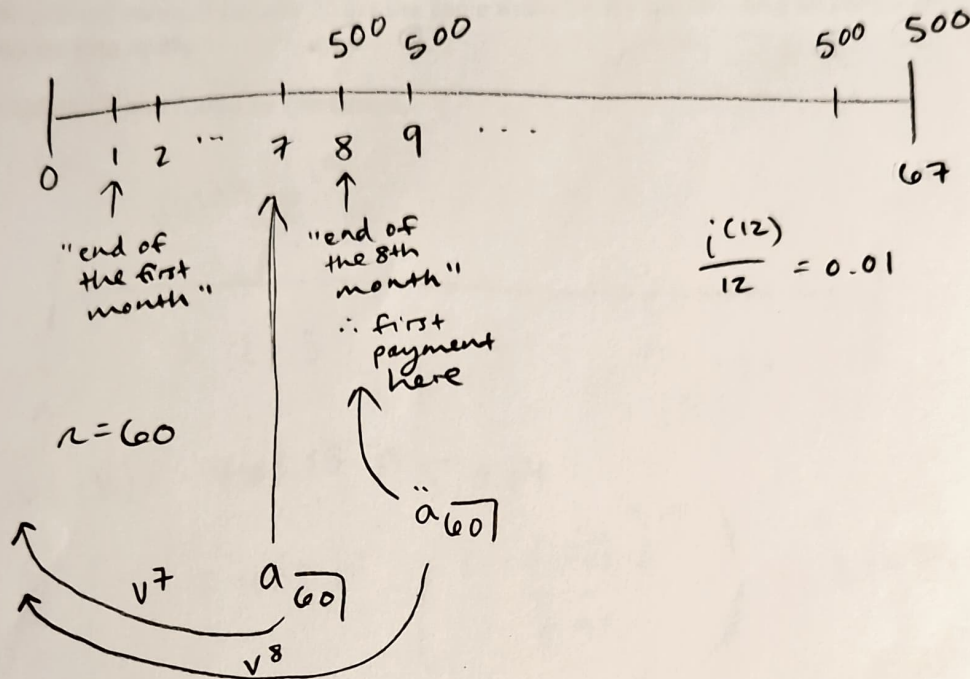 500 500 500 500
0 1 2 ... 7 8 9 .... 67
"end of
the first
month"
"end of
the 8th
month"
∴ first
payment
here
i(12)
12 = 0.01
n=60
ä60
v7 a60
v8